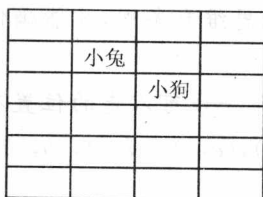 小兔
小狗